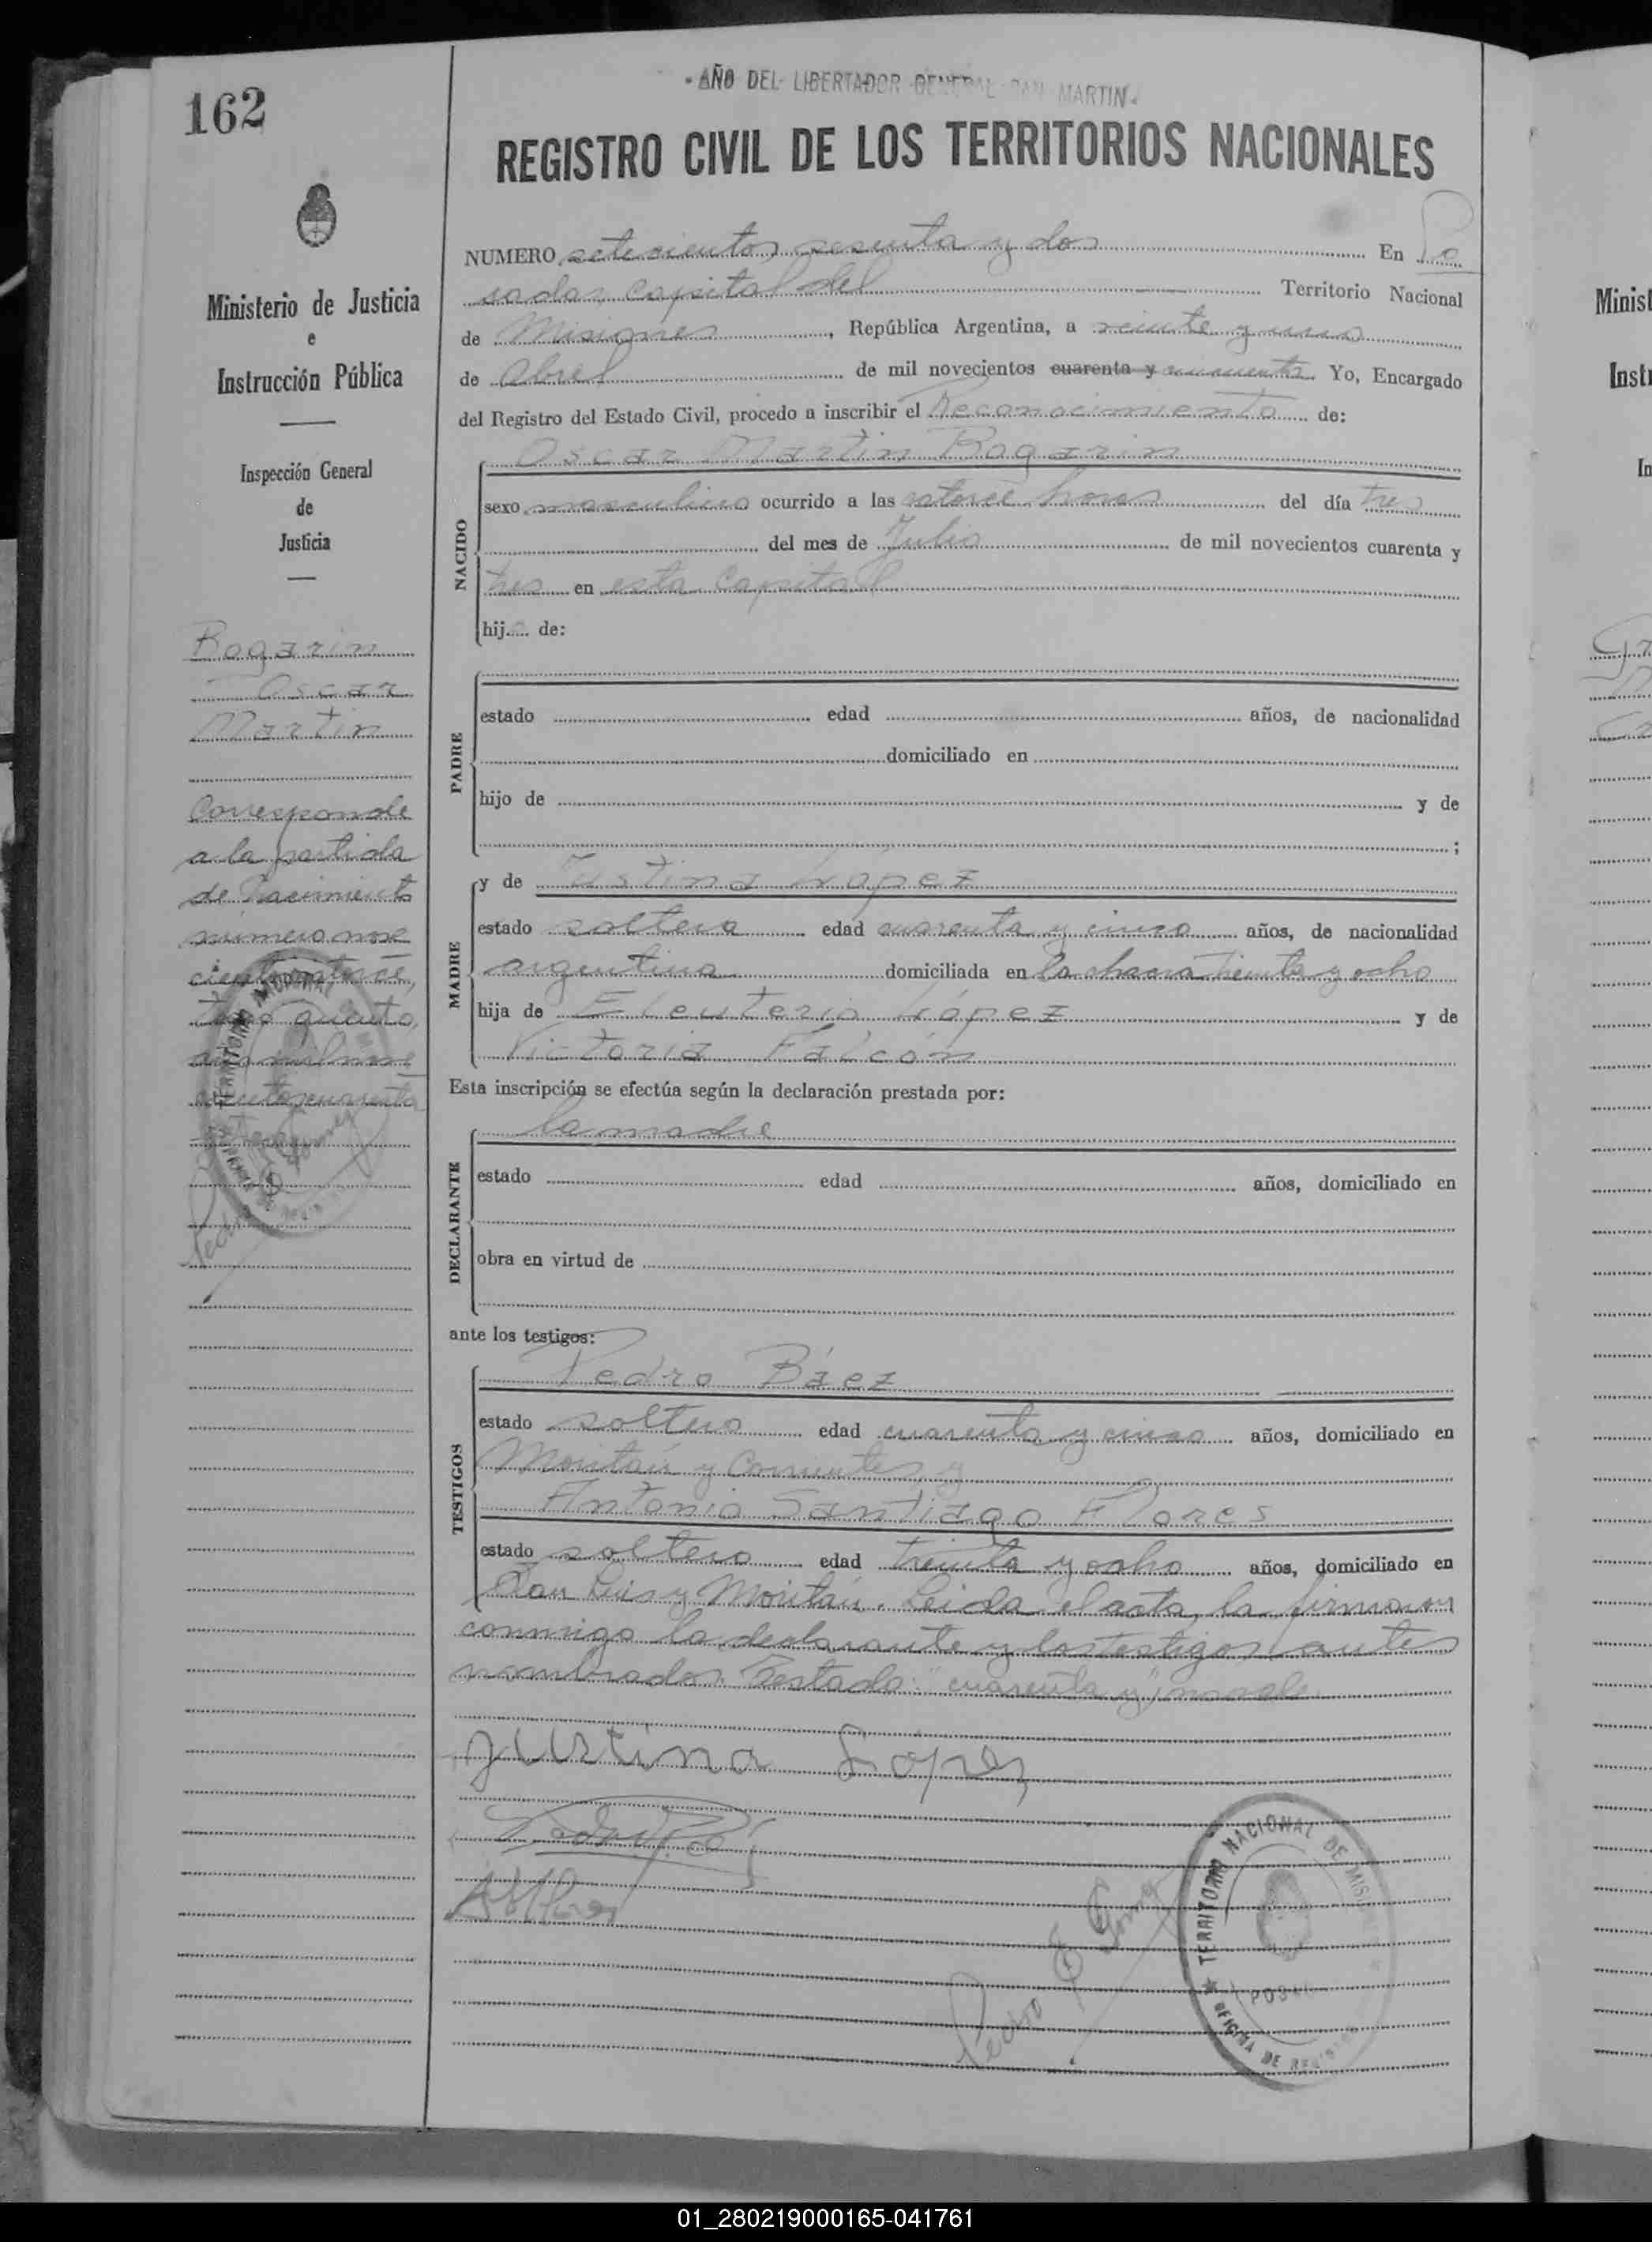 162
- AÑO DEL LIBERTADOR GENERAL SAN MARTIN -
REGISTRO CIVIL DE LOS TERRITORIOS NACIONALES
Ministerio de Justicia
e
Instrucción Pública
Inspección General
de
Justicia
Bogarin
Oscar
Martin
Corresponde
a la partida
de Nacimiento
número nove
cientos catorce,
tomo quinto,
año mil nove
cientos cuarenta
NUMERO setecientos sesenta y dos En Po
sadas, capital del Territorio Nacional
de Misiones, República Argentina, a veinte y uno
de Abril de mil novecientos cuarenta y cincuenta Yo, Encargado
del Registro del Estado Civil, procedo a inscribir el Reconocimiento de:
Oscar Martin Bogarin
NACIDO
sexo masculino ocurrido a las catorce horas del día tres
del mes de Julio de mil novecientos cuarenta y
tres en esta Capital
hijo de:
PADRE
estado edad años, de nacionalidad
domiciliado en
hijo de y de
;
MADRE
y de Justina López
estado soltera edad cuarenta y cinco años, de nacionalidad
argentina domiciliada en la chacra treinta y ocho
hija de Eleuterio López y de
Victoria Falcón
Esta inscripción se efectúa según la declaración prestada por:
DECLARANTE
la madre
estado edad años, domiciliado en
obra en virtud de
ante los testigos:
TESTIGOS
Pedro Báez
estado soltero edad cuarenta y cinco años, domiciliado en
Moritán y Corrientes, y
Antonio Santiago Flores
estado soltero edad treinta y ocho años, domiciliado en
San Luis y Moritán. Leida el acta, la firman
conmigo la declarante y los testigos antes
nombrados. Testado: "cuarenta y", no vale.
Justina Lopez
TERRITORIO NACIONAL DE MISIONES
OFICINA DE
Minist
Inst
In
01_280219000165-041761